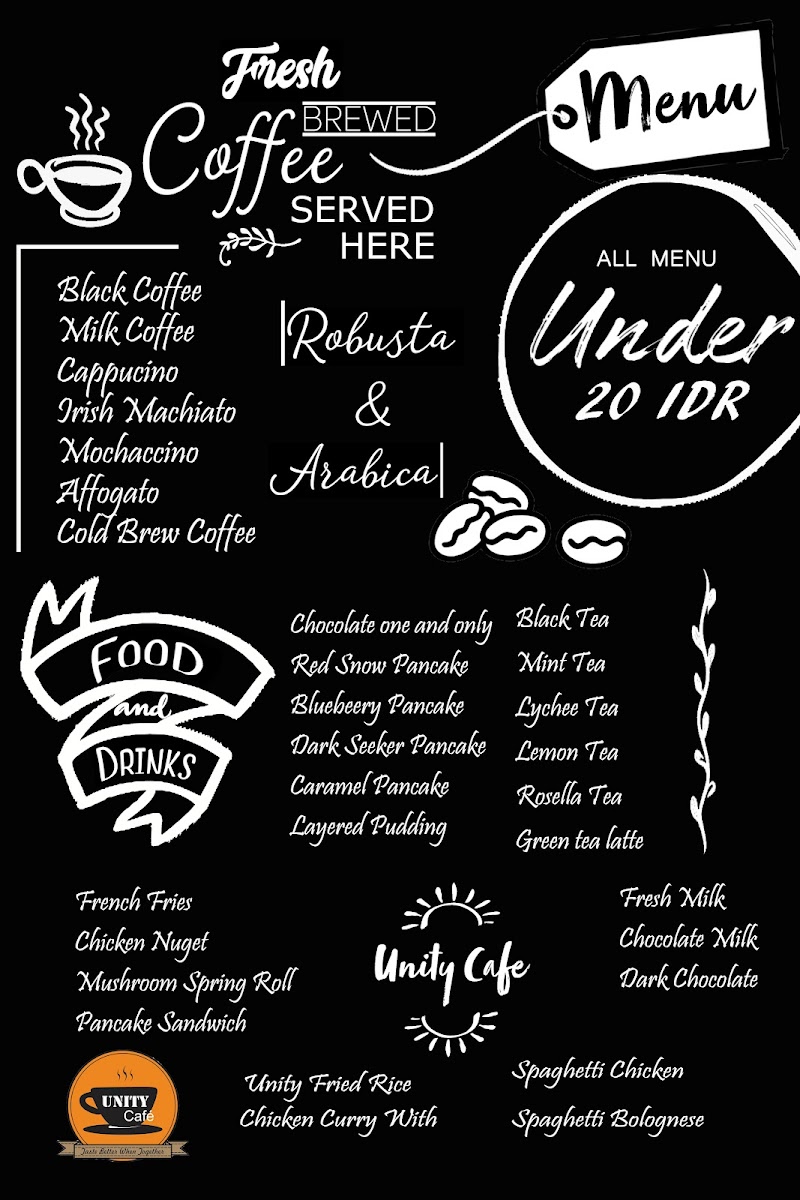 Fresh
BREWED
Coffee
SERVED
HERE
Menu
ALL MENU
Under
20 IDR
Black Coffee
Milk Coffee
Cappucino
Irish Machiato
Mochaccino
Affogato
Cold Brew Coffee
Robusta
&
Arabica
FOOD
and
DRINKS
Chocolate one and only
Red Snow Pancake
Bluebeery Pancake
Dark Seeker Pancake
Caramel Pancake
Layered Pudding
Black Tea
Mint Tea
Lychee Tea
Lemon Tea
Rosella Tea
Green tea latte
French Fries
Chicken Nuget
Mushroom Spring Roll
Pancake Sandwich
Unity Cafe
Fresh Milk
Chocolate Milk
Dark Chocolate
UNITY
Café
Taste Better When Together
Unity Fried Rice
Chicken Curry With
Spaghetti Chicken
Spaghetti Bolognese